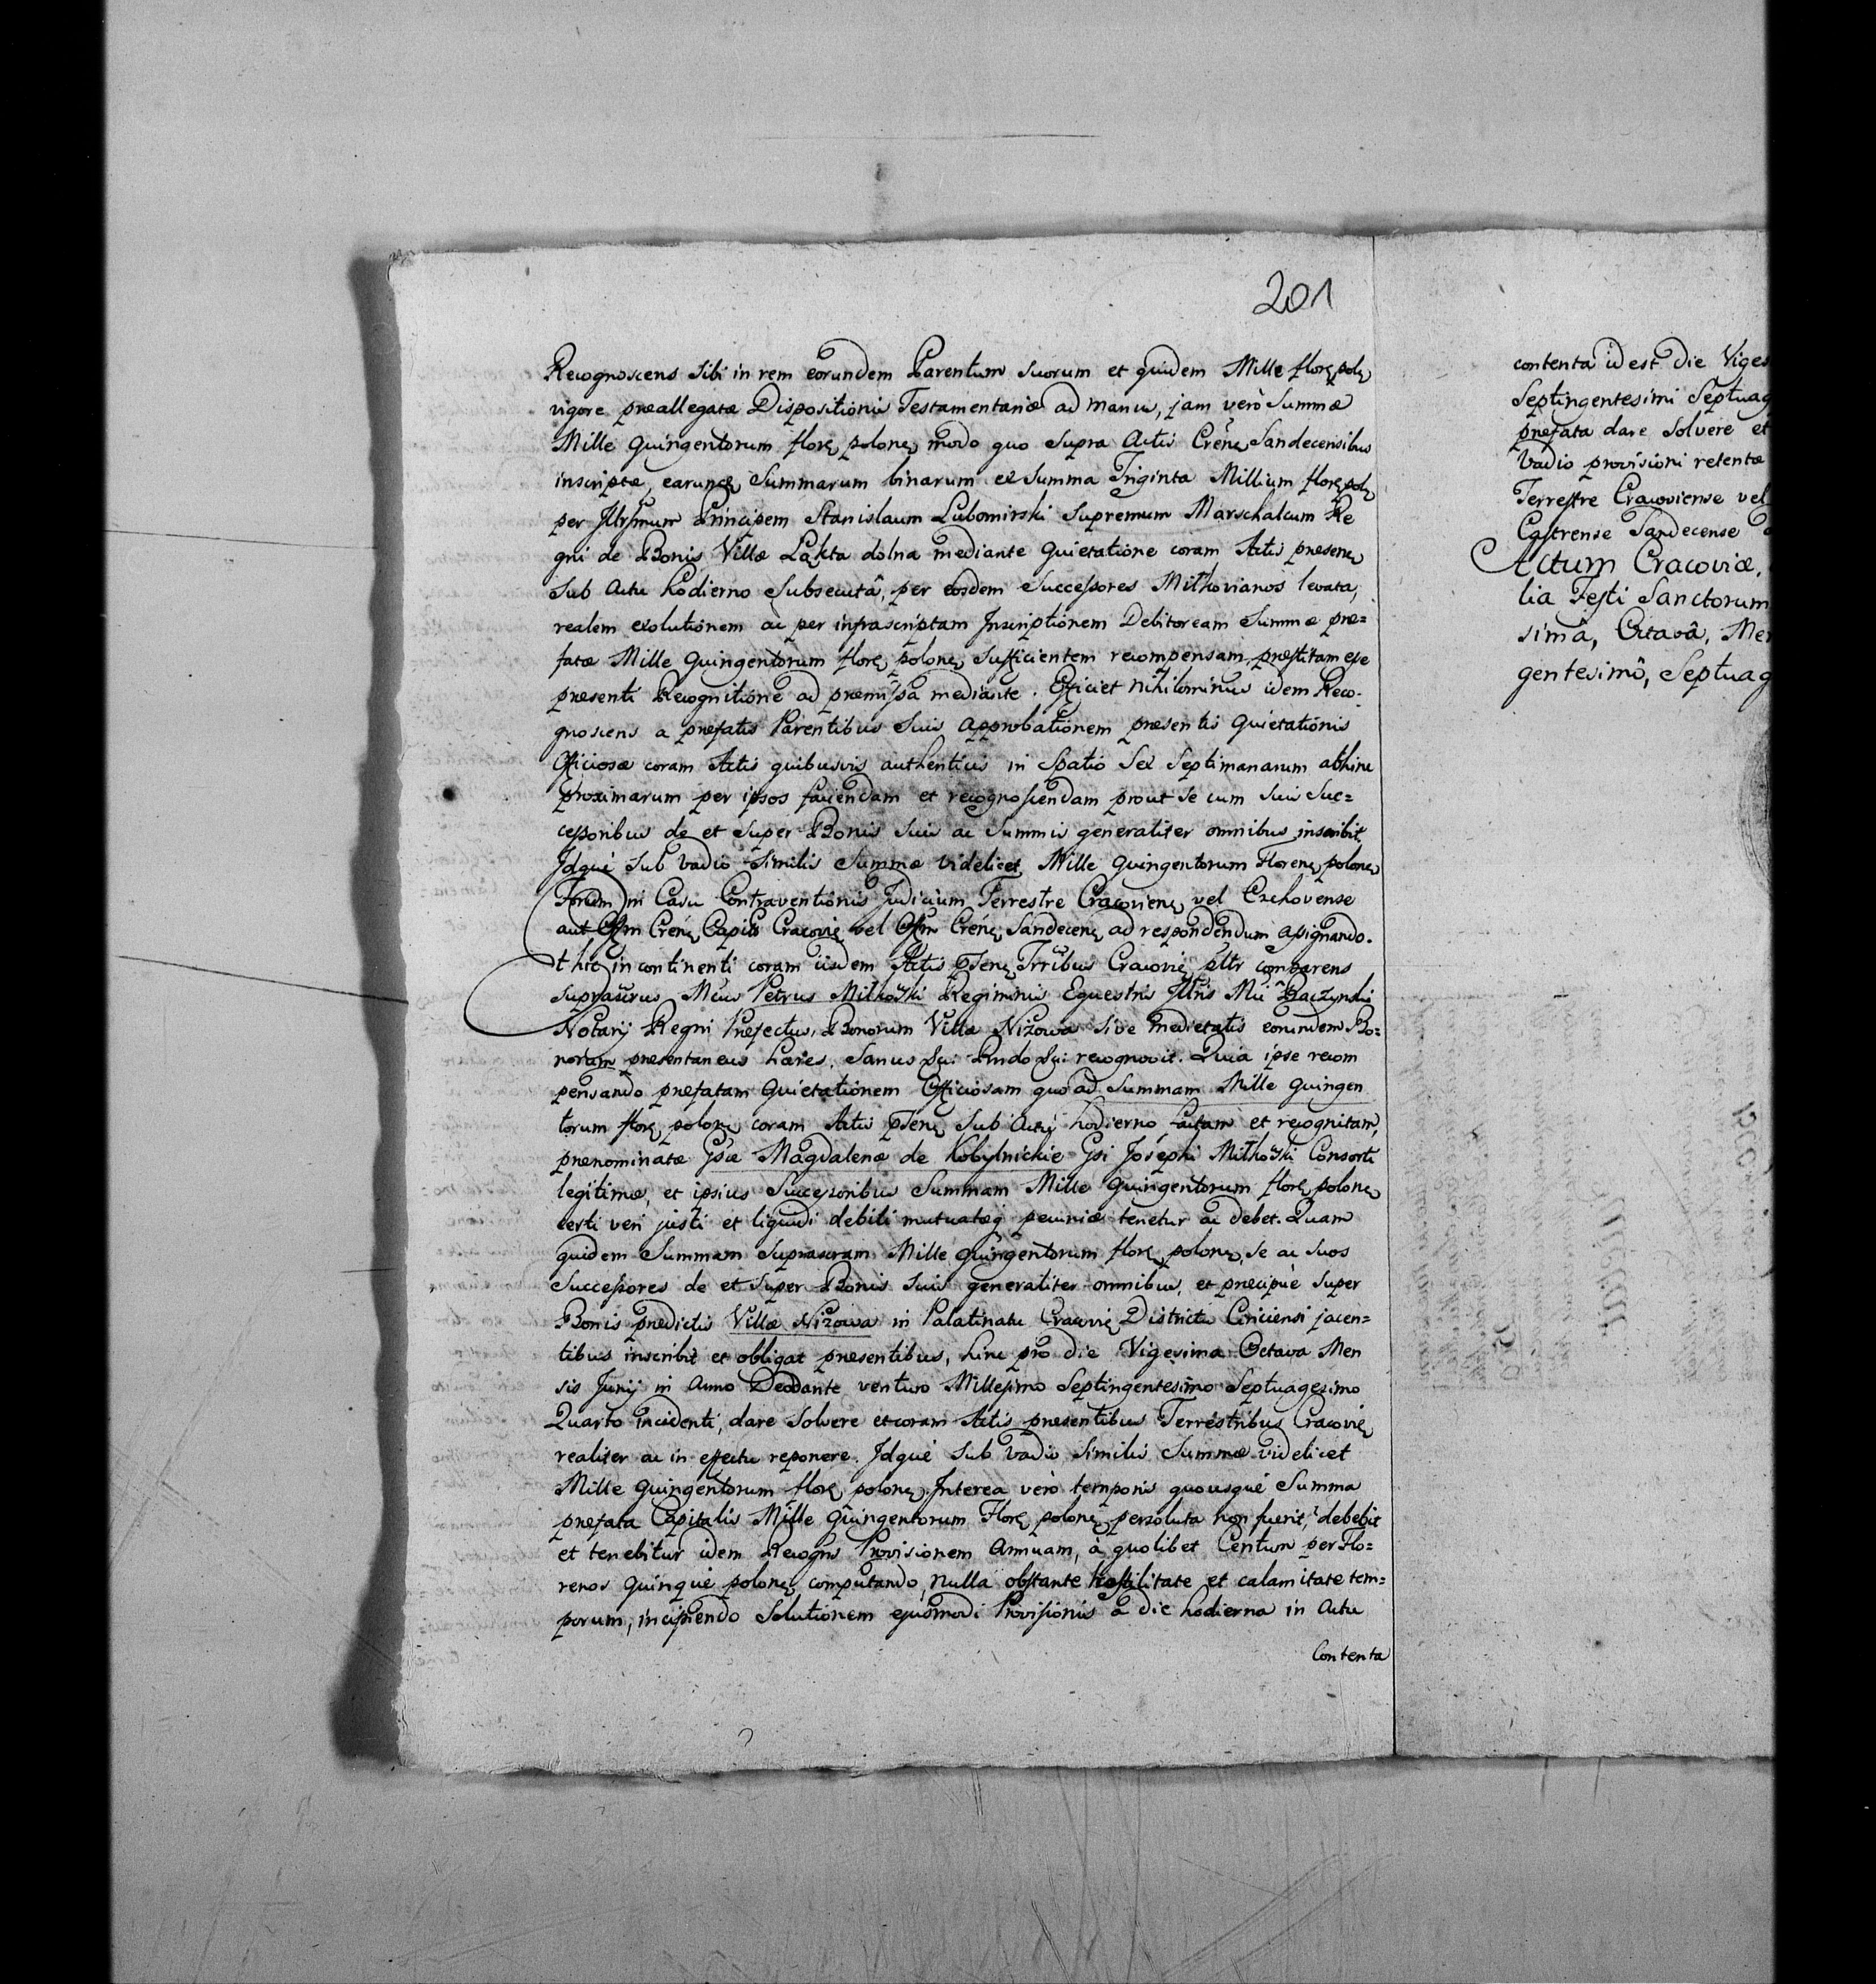 201
Recognoscens sibi in rem eorundem Parentum suorum et quidem Mille flor. pol.
vigore præallegatæ Dispositionis Testamentariæ ad manus, jam verò Summæ
Mille quingentorum flor. polon. modo quo supra Actis Crén. Sandecensibus
inscriptæ, earunq. Summarum binarum ex Summa Triginta Millium flor. pol.
per Jllrssmum Principem Stanislaum Lubomirski Supremum Marschalcum Re
gni de Bonis Villæ Łąkta dolna mediante Quietatione coram Actis presen.
sub Actu hodierno subsecutâ, per eosdem Successores Miłkovianos levata,
realem exolutionem ac per infrascriptam Jnscriptionem Debitoream Summæ præ=
fatæ Mille quingentorum flor. polon. sufficientem recompensam, præstitam esse
presenti Recognitione ad præmissa mediante. Efficiet nihilominus idem Reco-
gnoscens a prefatis Parentibus suis approbationem præsentis Quietationis
Officiosæ coram Actis quibusvis authenticis in Spatio Sex Septimanarum abhinc
proximarum per ipsos faciendam et recognoscendam prout se cum suis Suc=
cessoribus de et super Bonis suis ac Summis generaliter omnibus inscribit
Jdque sub vadio similis Summæ videlicet Mille quingentorum Floren. polon.
Forum in Casu Contraventionis Judicium Terrestre Cracovien. vel Czchovense
aut Offm Crén. Capit. Cracovie. vel Offm Crén. Sandecen. ad respondendum assignando.
Et hic in continenti coram iisdem Actis psen. Trribus Cracovie. pltr comparens
suprascrus Mcus Petrus Miłkowski Regiminis Equestris Jllris Mci Raczynski
Notarij Regni Prefectus, Bonorum Villæ Nizowa sive medietatis eorundem Bo=
norum presentaneus hæres. Sanus &c: Pmdo &c: recognovit. Quia ipse recom
pensando prefatam Quietationem Officiosam quo ad Summam Mille quingen
torum flor. polon. coram Actis psen. sub Actu hodierno factam et recognitam,
prænominatæ Gsæ Magdalenæ de Kobylnickie Gsi Josephi Miłkowski Consorti
legitimæ, et ipsius Successoribus Summam Mille quingentorum flor. polon.
certi veri justi et liquidi debiti mutuatæq. pecuniæ tenetur ac debet. Quam
quidem Summam suprascram Mille quingentorum flor. polon. se ac suos
Successores de et super Bonis suis generaliter omnibus, et præcipuè super
Bonis prædictis Villæ Nizowa in Palatinatu Cracovie. Districtu Cziciensi jacen=
tibus inscribit et obligat præsentibus, hinc pro die Vigesima Octava Men
sis Junij in Anno Deodante venturo Millesimo Septingentesimo Septuagesimo
Quarto incidenti, dare solvere et coram Actis præsentibus Terrestribus Cracovie.
realiter ac in effectu reponere. Jdque sub vadio similis Summæ videlicet
Mille quingentorum flor. polon. Interea verò temporis quousque Summa
prefata Capitalis Mille quingentorum Flor. polon. persoluta non fuerit, debebit
et tenebitur idem Recogns Provisionem Annuam, à quolibet Centum per Flo=
renos quinque polon. computando, nulla obstante hostilitate et calamitate tem=
porum, incipiendo Solutionem ejusmodi Provisionis a die hodierna in Actu
Contenta
contenta id est die Viges
Septingentesimi Septuag
prefata dare solvere et
Vadio provisioni retentæ
Terrestre Cracoviense vel
Castrense Sandecense
Actum Cracoviæ,
lia Festi Sanctorum
simâ, Octavâ, Me
gentesimô, Septuag